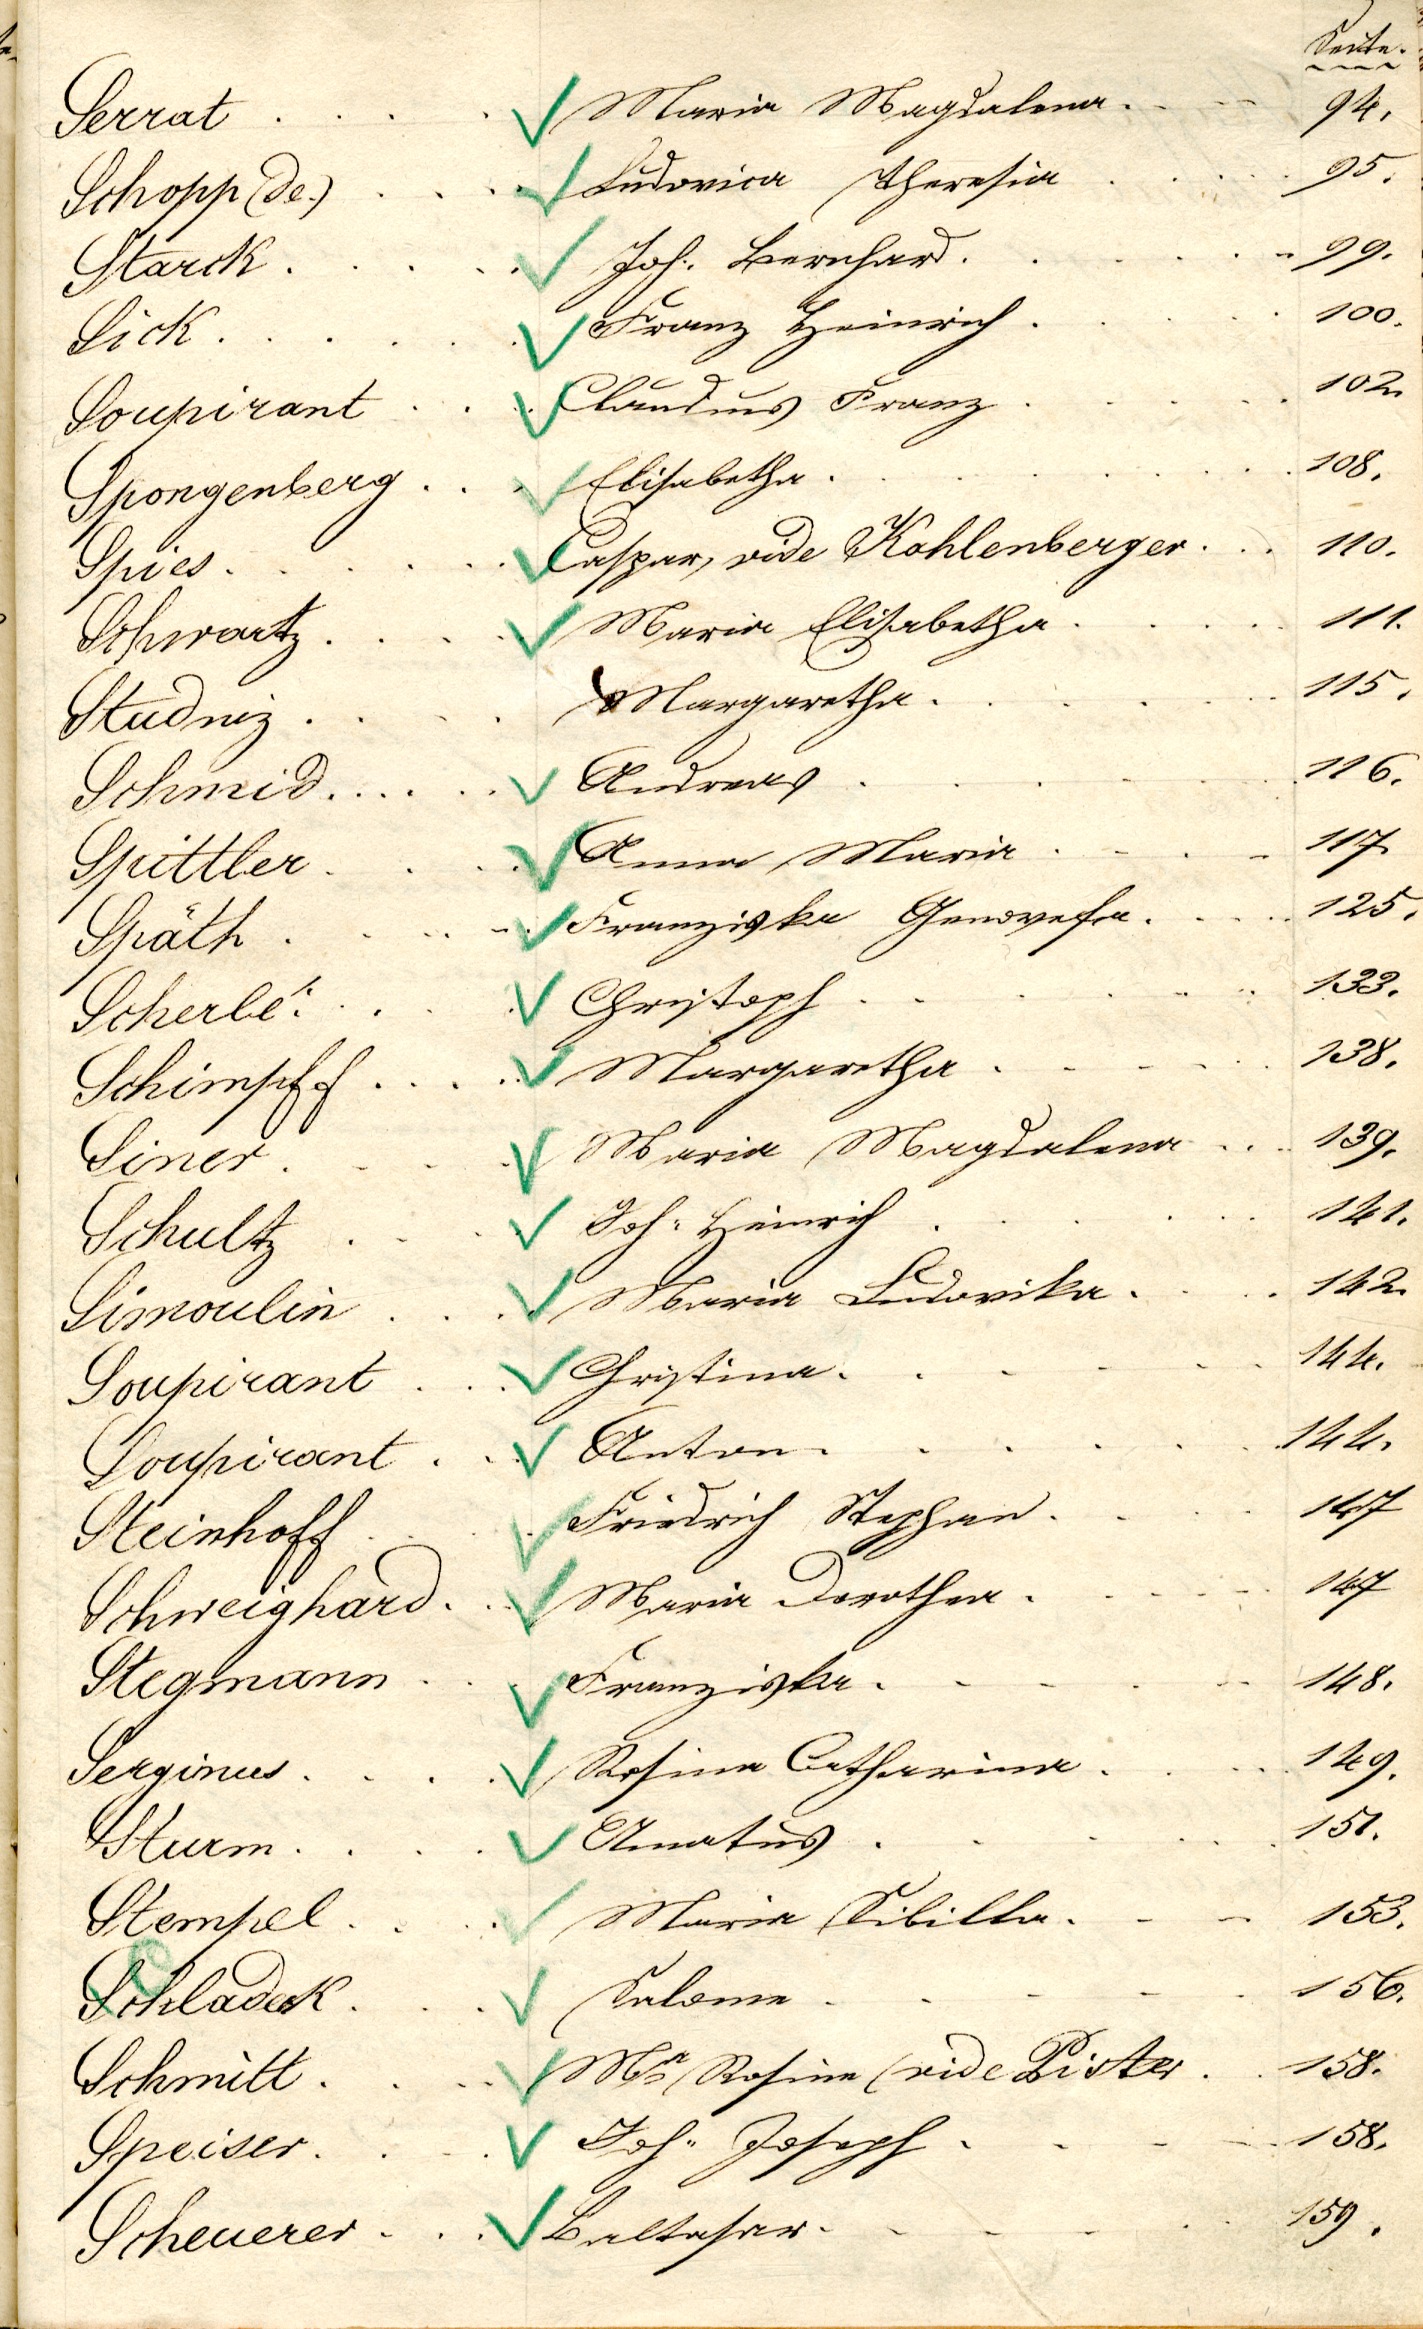 Seite.
Serrat . . . . Maria Magdalena. . . . 94.
Schopp (de.) . . . Ludovica Theresia . . . . 95.
Starck . . . . . Joh. Bernhard. . . . . . 99.
Sick . . . . . . Franz Heinrich . . . . . 100.
Soupirant . . . Claudius Franz . . . . . 102.
Spongenberg . . . Elisabetha . . . . . . 108.
Spies . . . . . . Caspar, vide Kohlenberger . . . 110.
Schwartz . . . . Maria Elisabetha . . . . . 111.
Studniz . . . . Margaretha . . . . . . 115.
Schmid . . . . . . Andreas . . . . . . 116.
Spittler . . . . Anna Maria . . . . 117.
Späth . . . . . Franziska Genovefa . . . . 125.
Scherlé: . . . . Christoph . . . . . . 133.
Schimpff . . . . Margaretha . . . . . 138.
Siner . . . . Maria Magdalena . . . 139.
Schultz . . . Joh: Heinrich . . . . . 141.
Simoulin . . . Maria Ludovika . . . . 142.
Soupirant . . . Christina . . . . . . 144.
Soupirant . . . Anton . . . . . . 144.
Steinhoff . . . Friedrich Stephan . . . . 147
Schweighard . . . Maria Dorothea . . . . . 147
Stegmann . . . Franziska . . . . . . 148.
Serginus . . . . Rosina Catharina . . . . 149.
Sturm . . . . Amatus . . . . . . 151.
Stempel . . . . Maria Sibilla . . . 153.
Schladeck . . . Salome . . . . . . 156.
Schmitt . . . . Mª Rosina (vide Pister . . 158.
Speiser . . . . Joh: Joseph . . . . . 158.
Scheuerer . . . Baltasar . . . . . . 159.